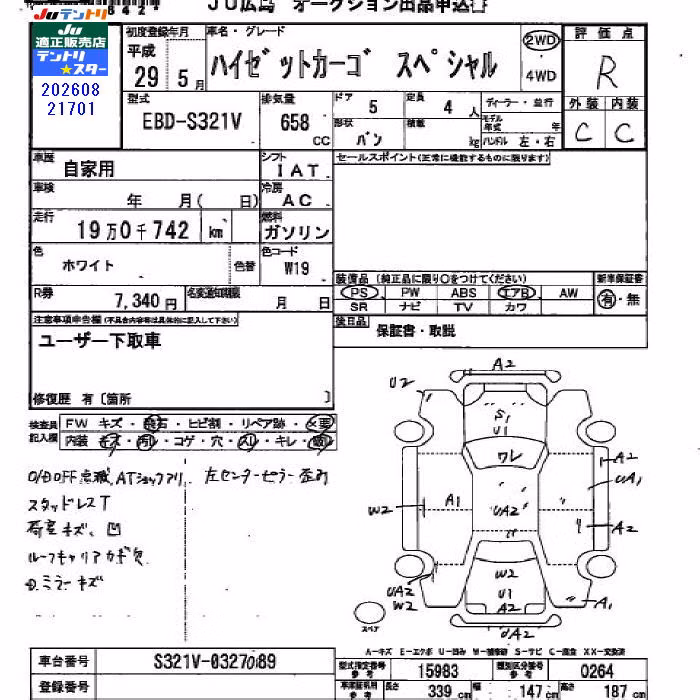 8427
JU広島 オークション出品申込
JUテントリ
JU
適正販売店
テントリ
★スター
202608
21701
初度登録年月
平成
29年 5月
車名・グレード
ハイゼットカーゴ スペシャル
2WD
・
4WD
評価点
R
型式
EBD-S321V
排気量
658
CC
ドア 5
定員 4 人
形状 バン
積載 kg
ディーラー・並行
モデル年式 年
ハンドル 左・右
外装 内装
C C
車歴
自家用
シフト
IAT
セールスポイント(正常に機能するものに限ります)
車検
年 月( 日)
冷房
AC
走行
19万0千742 km
燃料
ガソリン
色
ホワイト
色替
色コード
W19
装備品(純正品に限り○をつけてください)
PS PW ABS エアB AW
SR ナビ TV カワ
新車保証書
有・無
R券
7,340円
名変通知期限
月 日
後日品
保証書・取説
注意事項申告欄(不具合内容等は具体的に記入して下さい)
ユーザー下取車
修復歴 有〔箇所 〕
検査員
記入欄
FW キズ・飛石・ヒビ割・リペア跡・×要
内装 キズ・汚れ・コゲ・穴・スリ・キレ・
O/D OFF点滅、ATショックアリ、左センターピラー歪み
スタッドレスT
荷室キズ、凹
ルーフキャリアカギ欠
D.ミラーキズ
A2
U2
S1
U1
ワレ
A2
UA1
W2
A1
UA2
A2
UA2
W2
W2
U1
A2
A1
UA2
スペア
A-キズ E-エクボ U-凹み W-補修跡 S-サビ C-腐食 XX-交換済
車台番号
S321V-0327089
登録番号
型式指定番号
参考
15983
類別区分番号
参考
0264
車検証利用
参考
長さ 339 cm
幅 147 cm
高さ 187 cm